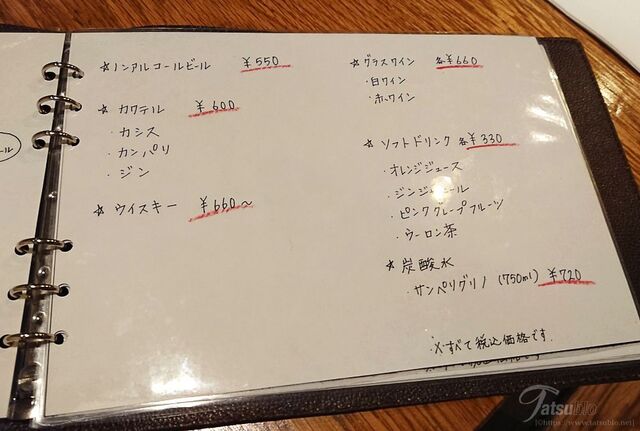 ☆ノンアルコールビール ¥550
☆カクテル ¥600
・カシス
・カンパリ
・ジン
☆ウイスキー ¥660〜
☆グラスワイン 各¥660
・白ワイン
・赤ワイン
☆ソフトドリンク 各¥330
・オレンジジュース
・ジンジャエール
・ピンクグレープフルーツ
・ウーロン茶
☆炭酸水
・サンペリグリノ (750ml) ¥720
※すべて税込価格です。
Tatsublo
[©https://www.tatsublo.net]